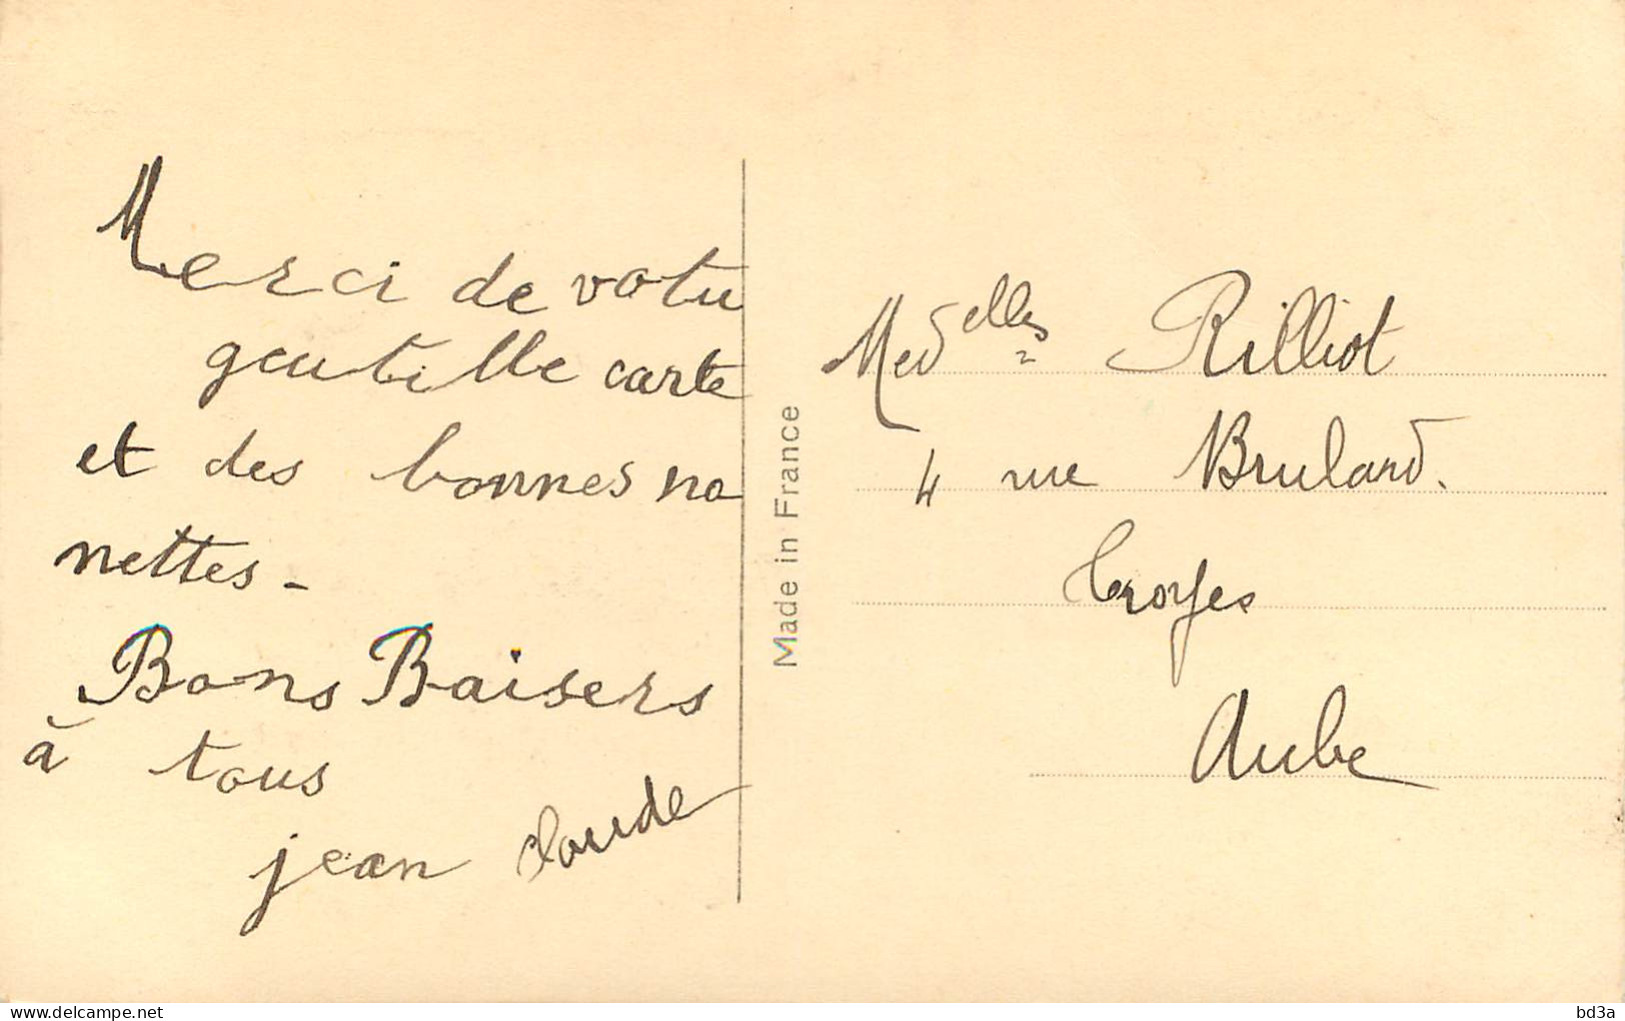 Merci de votre
gentille carte
et des bonnes no
nettes -
Bons Baisers
à tous
jean Claude
Made in France
Medelles Rilliot
4 rue Brulard.
Troyes
Aube
delcampe.net
bd3a